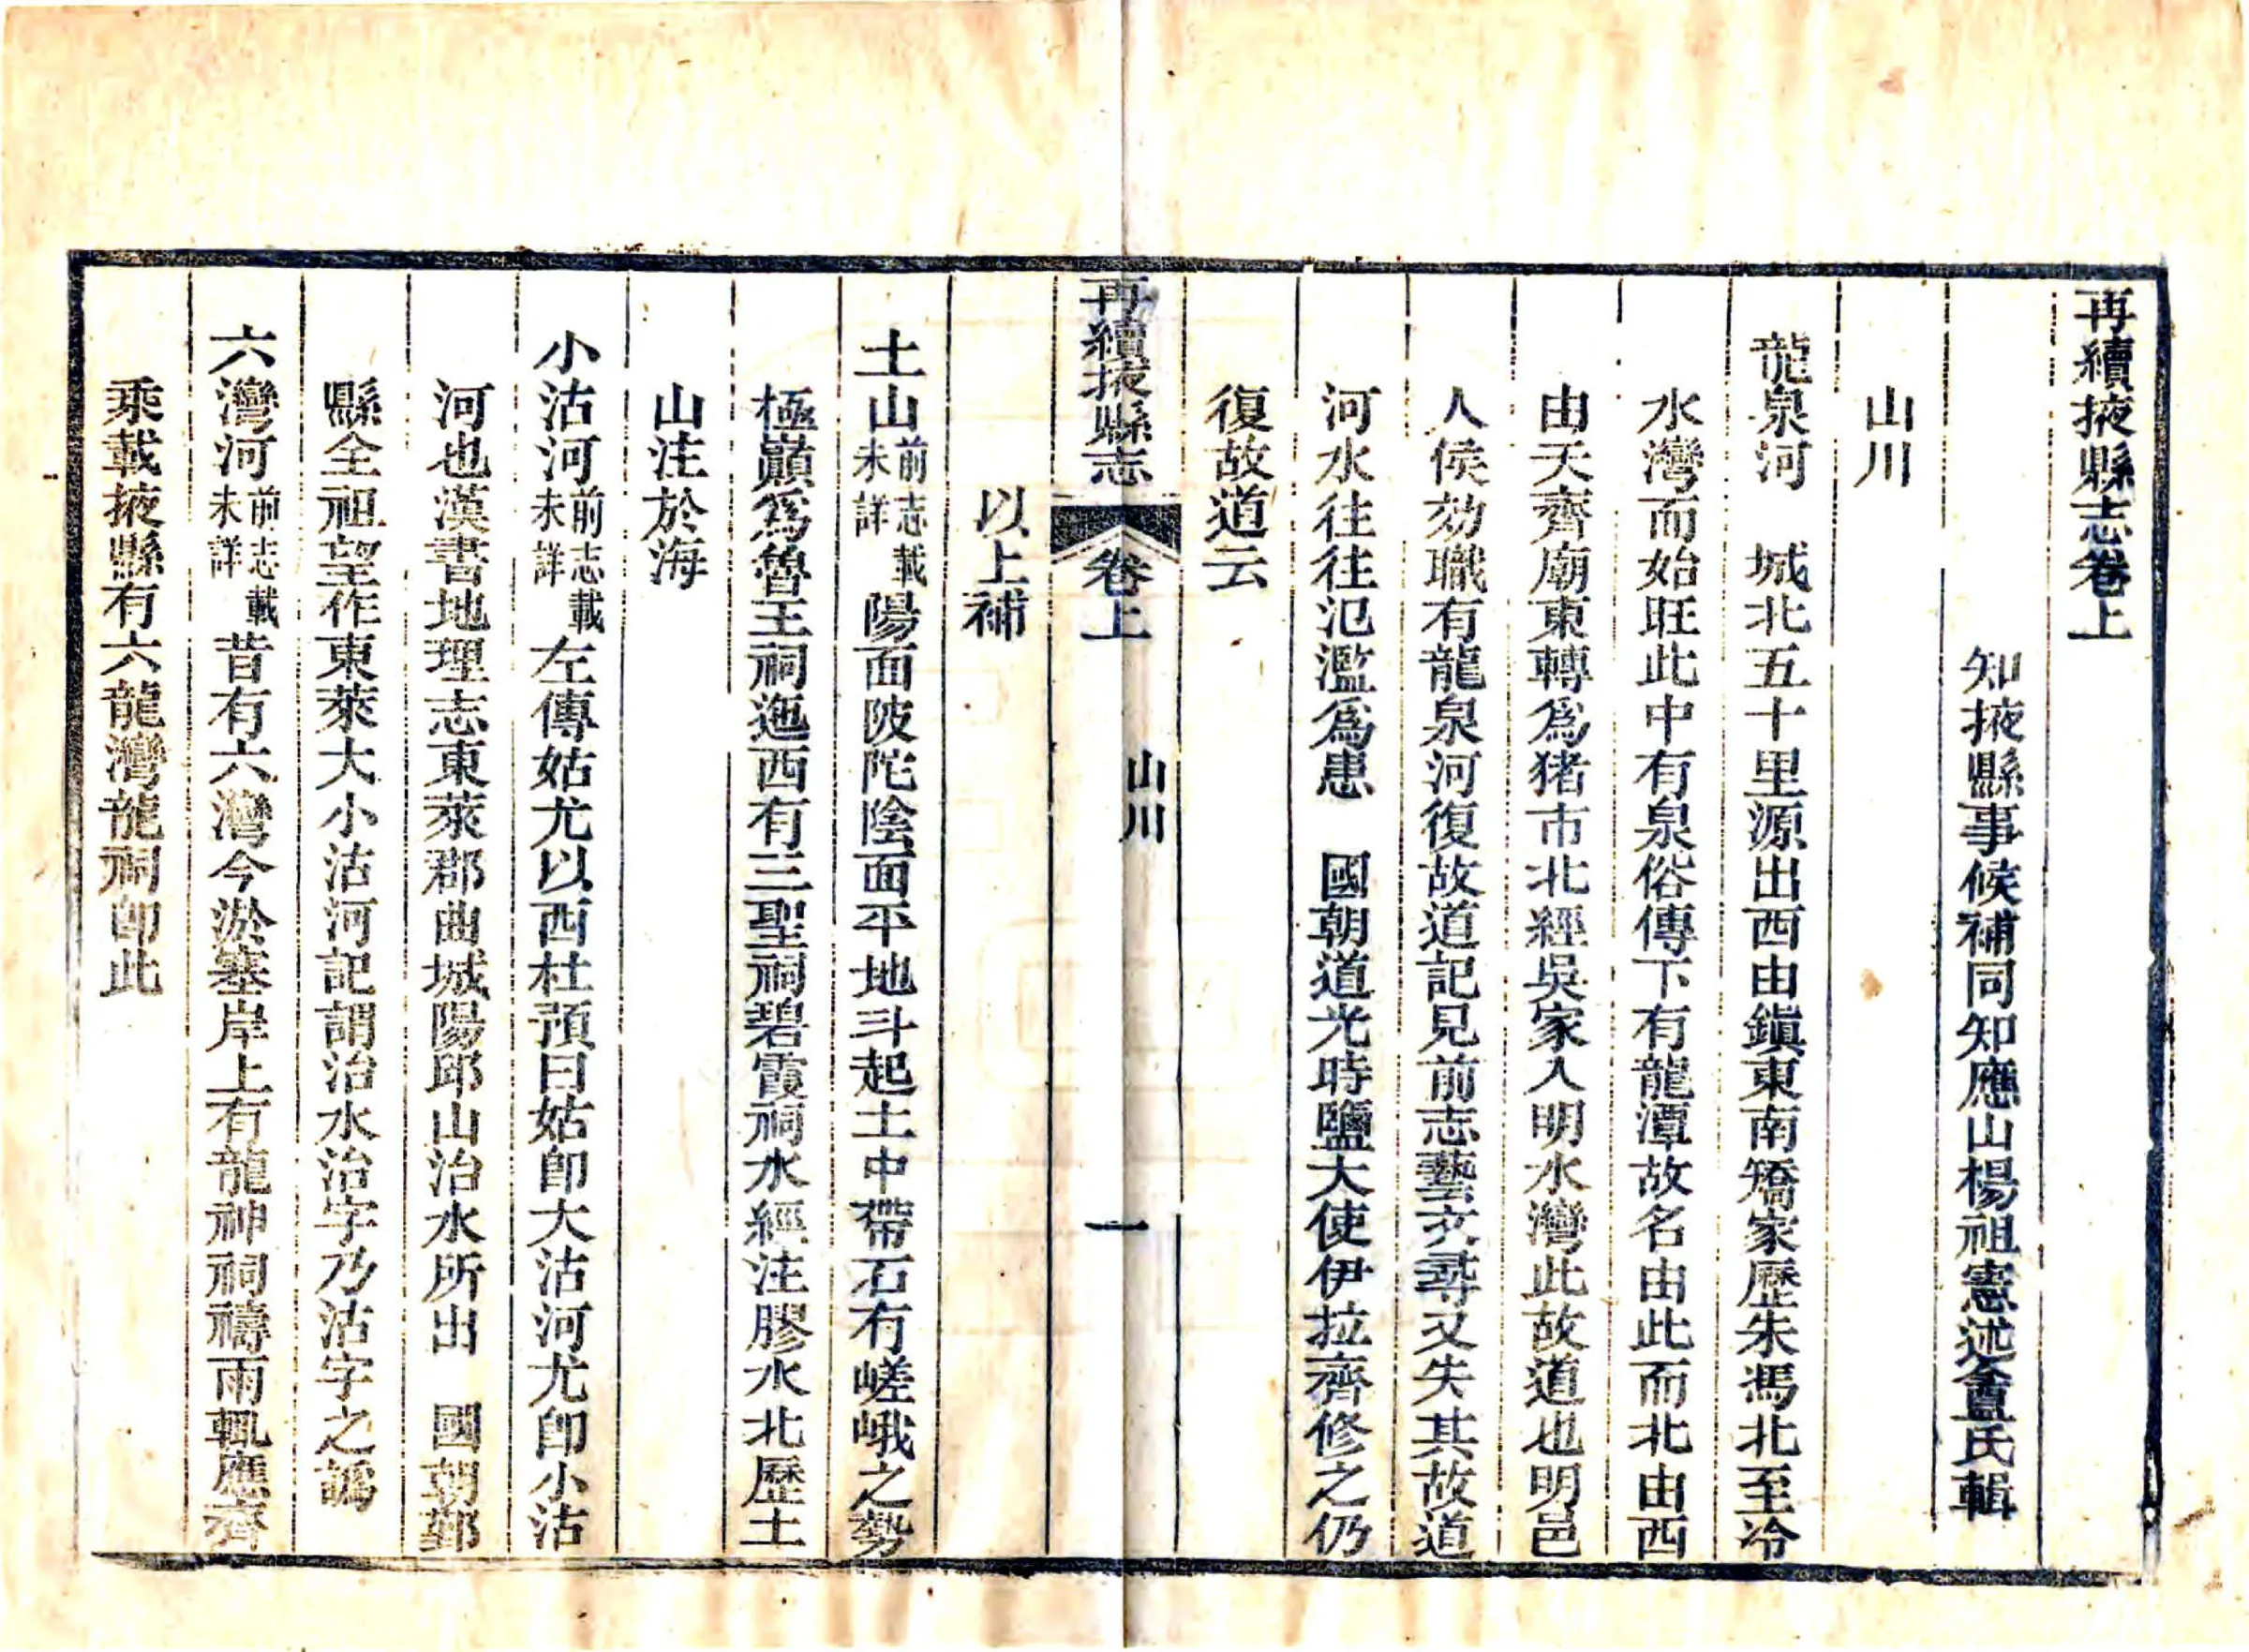 再續掖縣志卷上
知掖縣事候補同知應山楊祖憲述盦氏輯
山川
龍泉河　城北五十里源出西由鎮東南矯家歷朱馮北至冷
水灣而始旺此中有泉俗傳下有龍潭故名由此而北由西
由天齊廟東轉爲猪市北經吳家入明水灣此故道也明邑
人侯劾職有龍泉河復故道記見前志藝文尋又失其故道
河水往往氾濫爲患　國朝道光時鹽大使伊拉齊修之仍
復故道云
再續掖縣志　卷上　山川　一
以上補
土山前志載未詳陽面陂陀陰面平地斗起土中帶石有嵯峨之勢
極巔爲魯王祠迤西有三聖祠碧霞祠水經注膠水北歷土
山注於海
小沽河前志載未詳左傳姑尤以西杜預曰姑卽大沽河尤卽小沽
河也漢書地理志東萊郡曲城陽邱山治水所出　國朝鄞
縣全祖望作東萊大小沽河記謂治水治字乃沽字之譌
六灣河前志載未詳昔有六灣今淤塞岸上有龍神祠禱雨輒應齊
乘載掖縣有六龍灣龍祠卽此